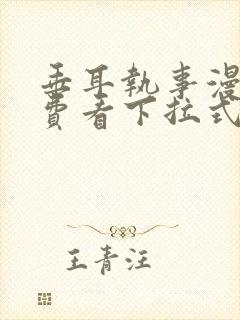 垂耳執事漫
費看下拉式
王青汪